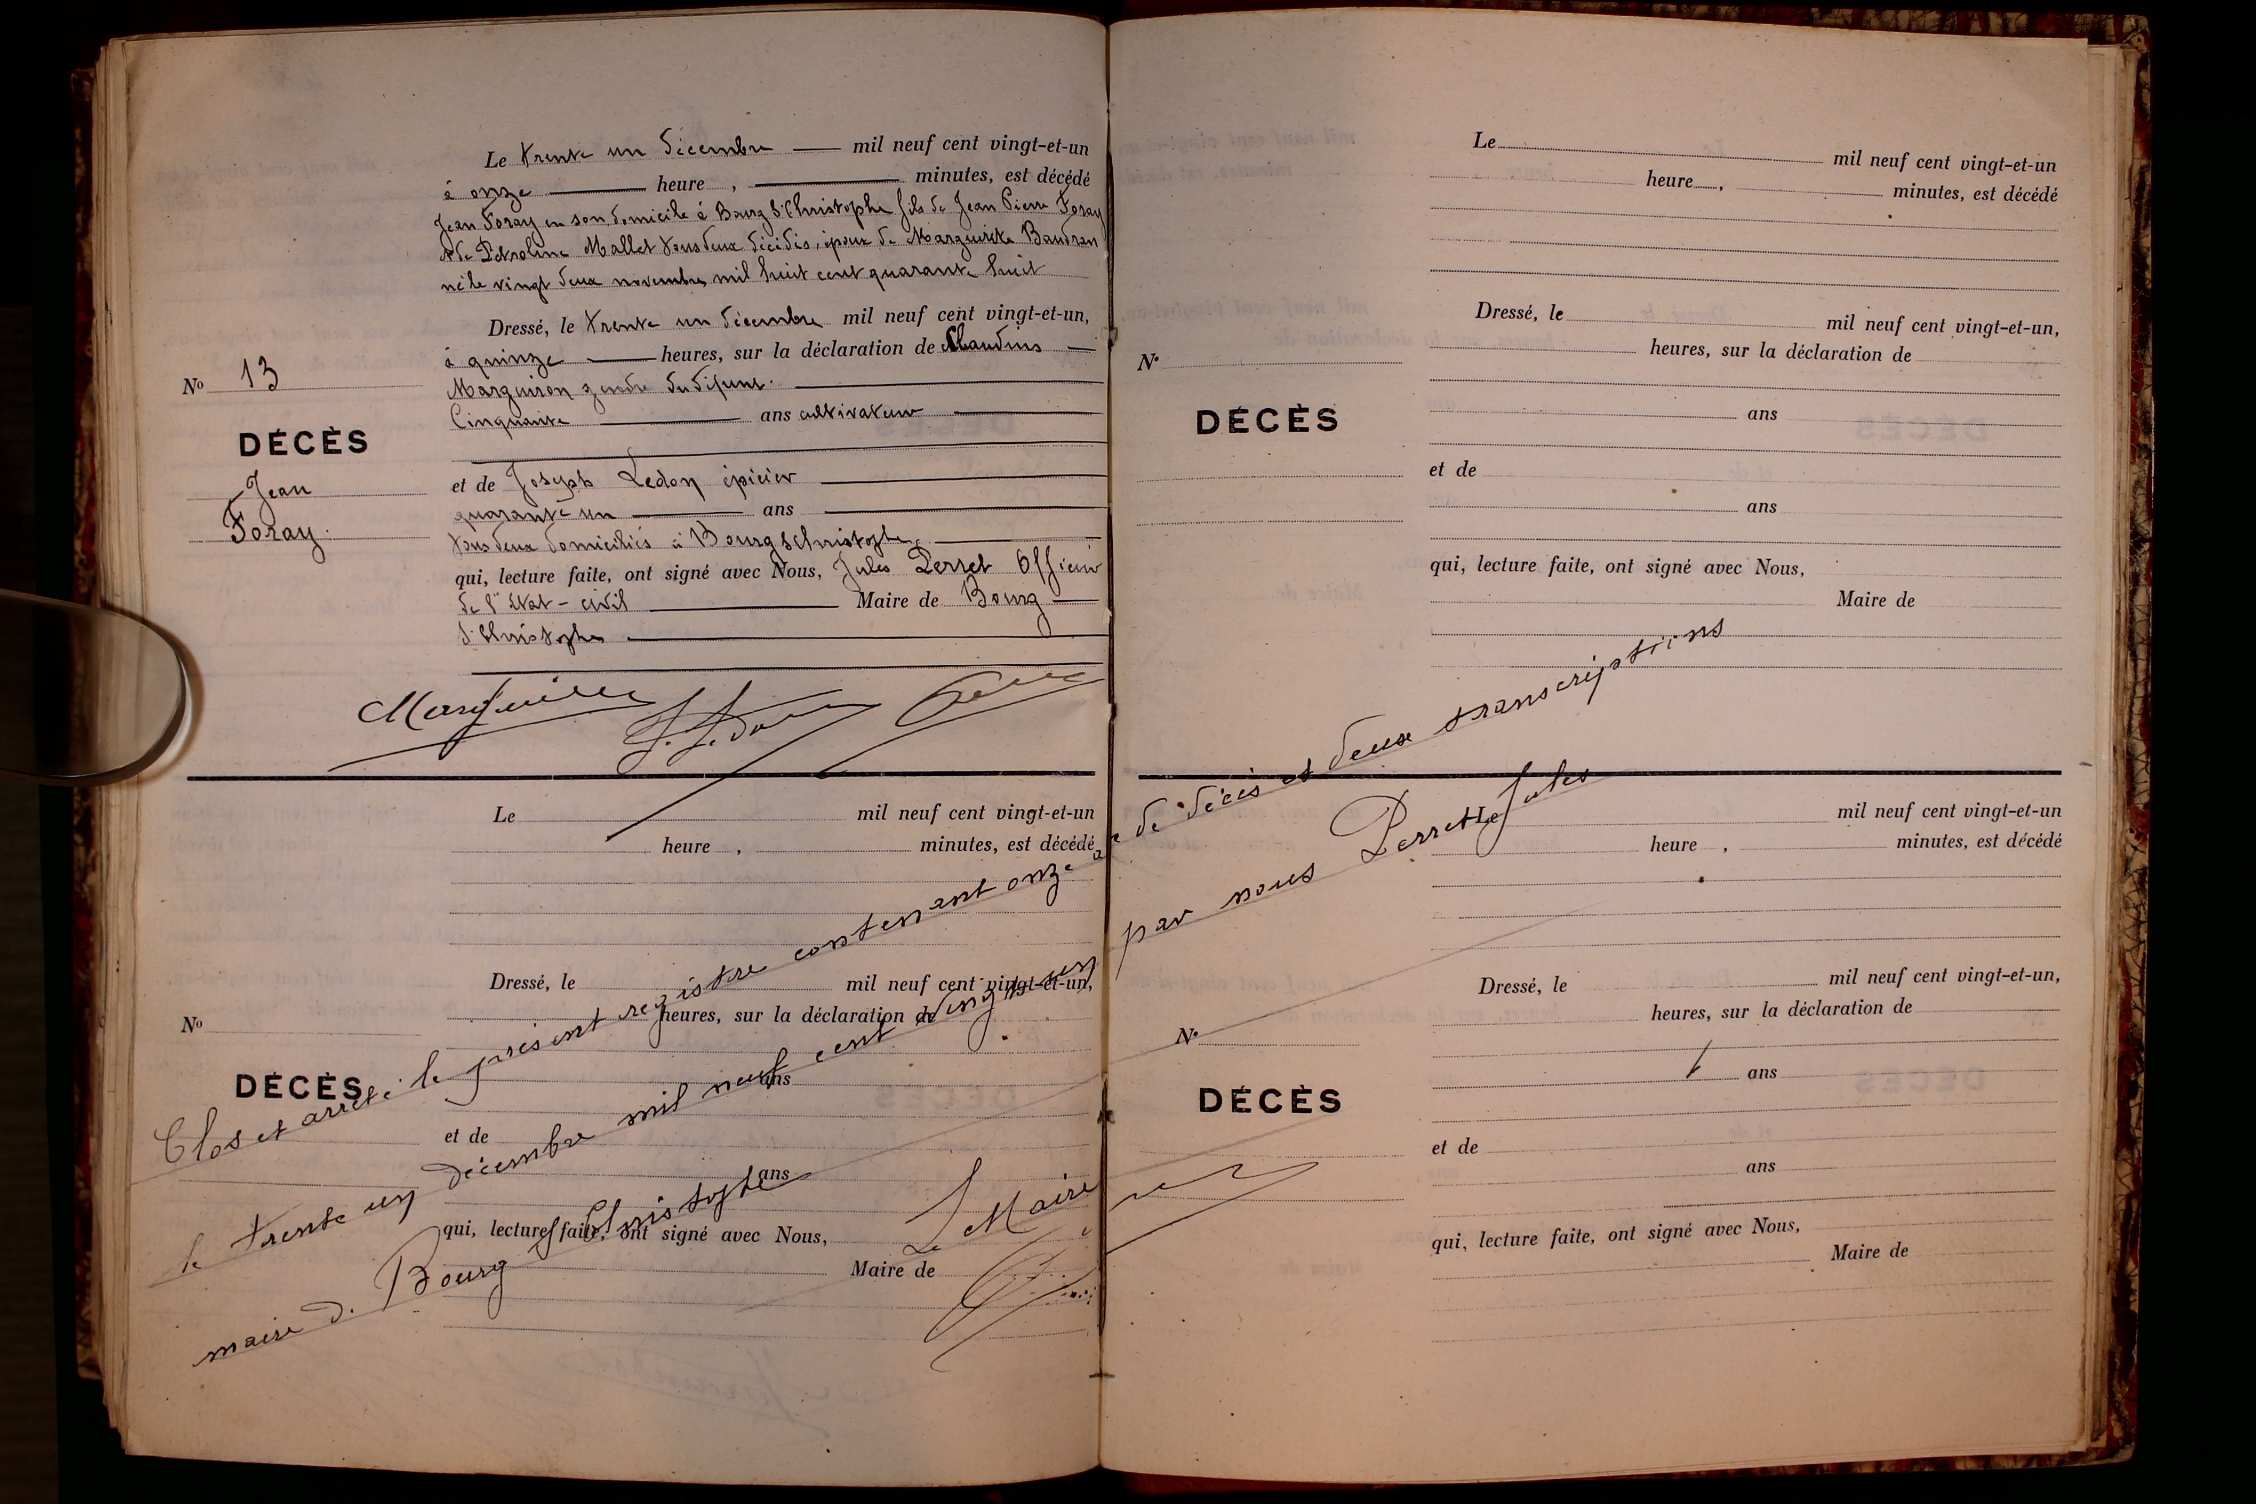 Le trente un décembre mil neuf cent vingt-et-un
à onze heure , minutes, est décédé
Jean Foray en son domicile à Bourg St Christophe fils de Jean Pierre Foray
et de Pétroline Mallet tous deux décédés, époux de Marguerite Baudran
né le vingt deux novembre mil huit cent quarante huit
Dressé, le trente un décembre mil neuf cent vingt-et-un,
à quinze heures, sur la déclaration de Claudius
Marguiron gendre du défunt.
Cinquante ans cultivateur
et de Joseph Ledon épicier
quarante un ans
tous deux domiciliés à Bourg St Christophe
qui, lecture faite, ont signé avec Nous, Jules Perret Officier
de l'état-civil Maire de Bourg
St Christophe
No 13
DÉCÈS
Jean
Foray.
Le mil neuf cent vingt-et-un
heure , minutes, est décédé
Dressé, le mil neuf cent vingt-et-un,
heures, sur la déclaration de
ans
et de
ans
qui, lecture faite, ont signé avec Nous,
Maire de
No
DÉCÈS
Clos et arrêté le présent registre contenant onze actes de décès et deux transcriptions
le trente un décembre mil neuf cent vingt un par nous Perret Jules
maire de Bourg St Christophe
Le Maire
Le mil neuf cent vingt-et-un
heure , minutes, est décédé
Dressé, le mil neuf cent vingt-et-un,
heures, sur la déclaration de
ans
et de
ans
qui, lecture faite, ont signé avec Nous,
Maire de
N°
DÉCÈS
Le mil neuf cent vingt-et-un
heure , minutes, est décédé
Dressé, le mil neuf cent vingt-et-un,
heures, sur la déclaration de
ans
et de
ans
qui, lecture faite, ont signé avec Nous,
Maire de
N°
DÉCÈS